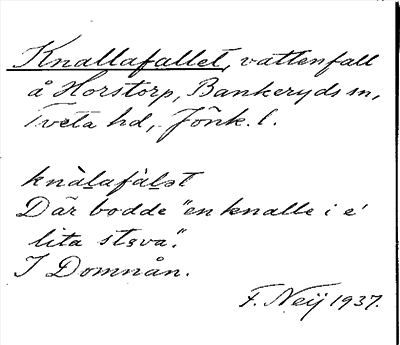 Knallafallet, vattenfall
å Horstorp, Bankeryds sn,
Tveta hd, Jönk. l.
knàlafàlət
Där bodde "en knalle i e'
lita stəva".
I Domnån.
F. Neij 1937.